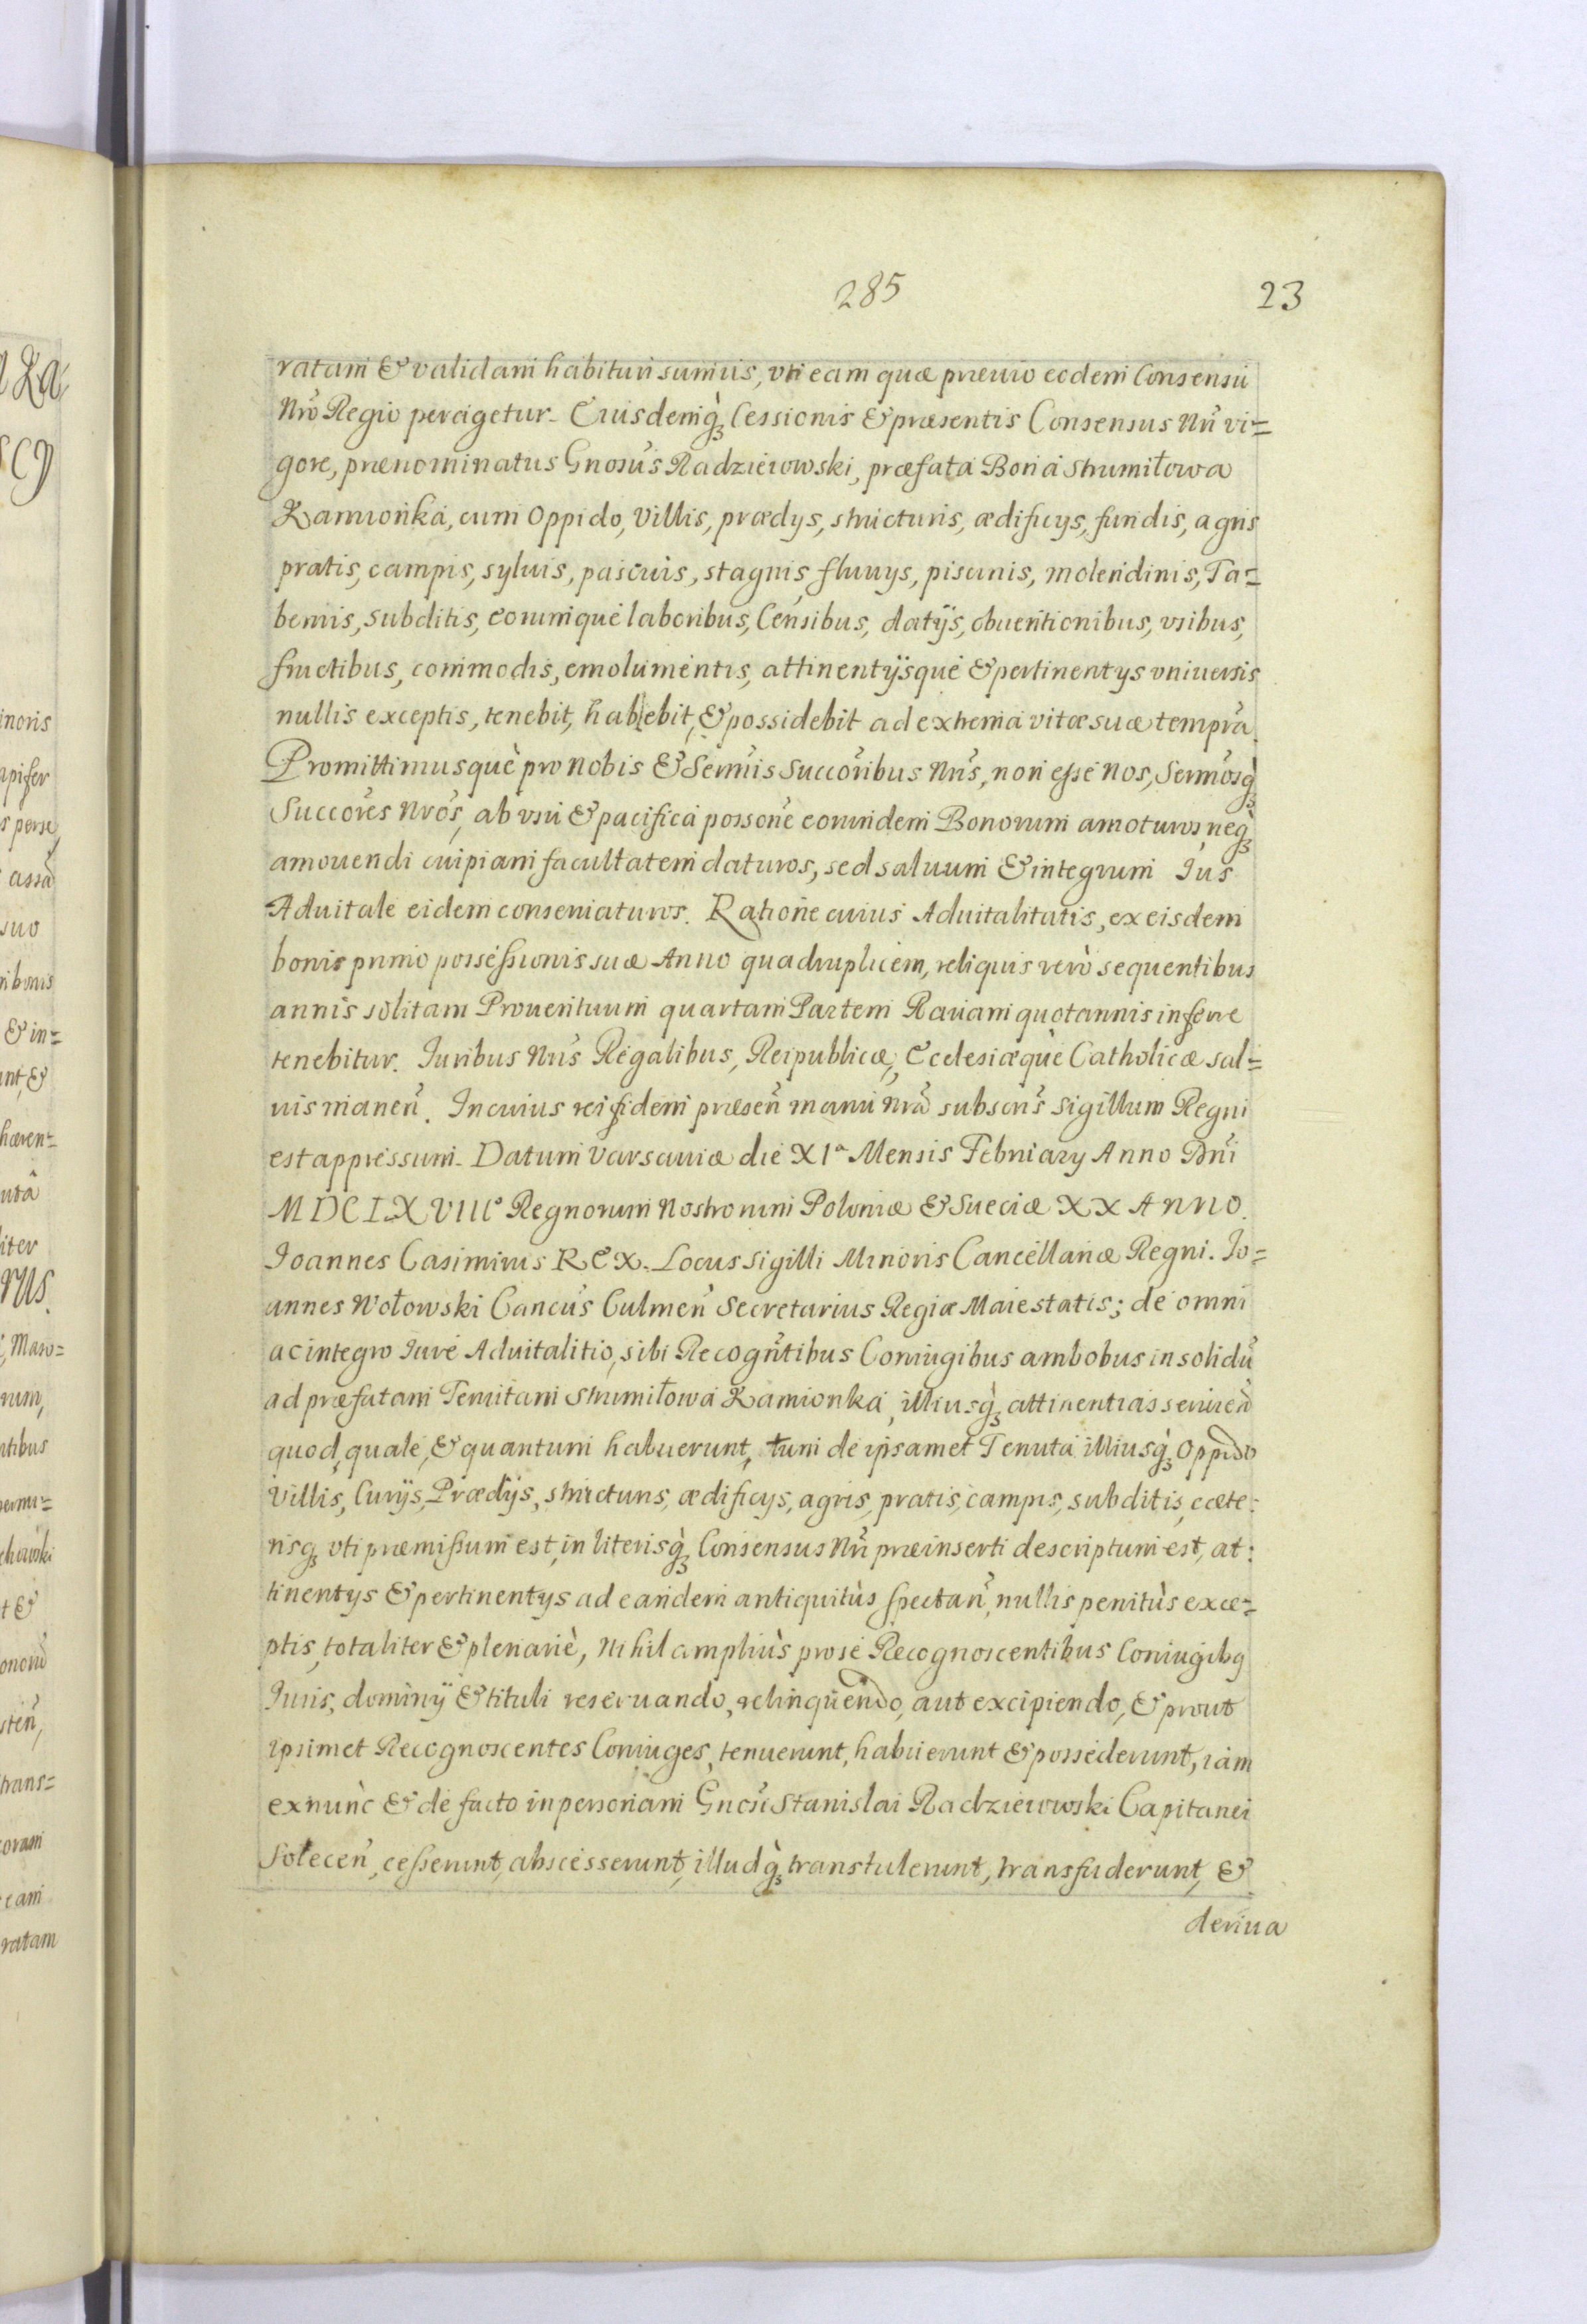 285
23
ratam & validam habituri sumus, uti eam quæ prævio eodem Consensu
Nrõ Regio peragetur. Eiusdemq; Cessionis & præsentis Consensus Nrĩ vi=
gore, prænominatus Gnosus Radzieiowski, præfata Bona Strumiłowa
Kamionka, cum Oppido, Villis, prædys, structuris, ædificys, fundis, agris
pratis, campis, syluis, pascuis, stagnis, fluuys, piscinis, molendinis, Ta=
bernis, subditis, eorumque laboribus, Censibus, datÿs, obuentionibus, vsibus,
fructibus, commodis, emolumentis, attinentÿsque & pertinentys vniuersis
nullis exceptis, tenebit, habebit, & possidebit ad extrema vitæ suæ tempra.
Promittimusquè pro nobis & Sermis Succoribus Nris, non esse nos, Sermosq;
Succores Nros, ab vsu & pacifica possone eorundem Bonorum amoturos, neq;
amouendi cuipiam facultatem daturos, sed saluum & integrum Ius
Aduitale eidem conseruaturos. Ratione cuius Aduitalitatis, ex eisdem
bonis primo possessionis suæ Anno quadruplicem, reliquis verò sequentibus
annis solitam Prouentuum quartam Partem Rauam quotannis inferre
tenebitur. Iuribus Nris Regalibus, Reipublicæ, Ecclesiæquè Catholicæ sal=
uis manen. In cuius rei fidem præsen manu Nra subscris sigillum Regni
est appressum. Datum Varsauiæ die XIa Mensis Februarÿ Anno Dni
MDCLXVIIIo Regnorum Nostrorum Poloniæ & Sueciæ XX Anno.
Ioannes Casimirus REX. Locus sigilli Minoris Cancellariæ Regni. Io=
annes Wołowski Cancus Culmen Secretarius Regiæ Maiestatis; de omni
ac integro Iure Aduitalitio, sibi Recogntibus Coniugibus ambobus in solidu
ad præfatam Tenutam Strumiłowa Kamionka, illiusq; attinentias seruien
quod, quale, & quantum habuerunt, tum de ipsamet Tenuta illiusq; Oppido
Villis, Curÿs, Prædÿs, structuris, ædificys, agris, pratis, campis, subditis, cæte=
risq; vti præmissum est, in literisq; Consensus Nri præinserti descriptum est, at=
tinentys & pertinentys ad eandem antiquitùs spectan, nullis penitùs exce=
ptis, totaliter & plenariè, Nihil ampliùs pro se Recognoscentibus Coniugibq
Iuris, dominÿ & tituli reseruando, relinquendo, aut excipiendo, & prout
ipsimet Recognoscentes Coniuges, tenuerunt, habuerunt & possederunt, iam
exnunc & de facto in personam Gnosi Stanislai Radzieiowski Capitanei
Solecen, cesserunt, abscesserunt, illudq; transtulerunt, transfuderunt, &
deriua